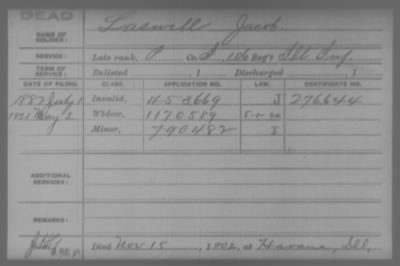 DEAD
NAME OF SOLDIER: Laswell Jacob.
SERVICE: Late rank, P Co. I, 106 Reg't Ill Inf.
TERM OF SERVICE: Enlisted , 1 Discharged , 1
DATE OF FILING. CLASS. APPLICATION NO. LAW. CERTIFICATE NO.
1882 July 1 Invalid, 453669 J 276644
1921 May 2 Widow, 1170589 5-1-20
Minor, 790482 J
ADDITIONAL SERVICES:
REMARKS:
Died Nov 15, 1902, at Havana, Ill,